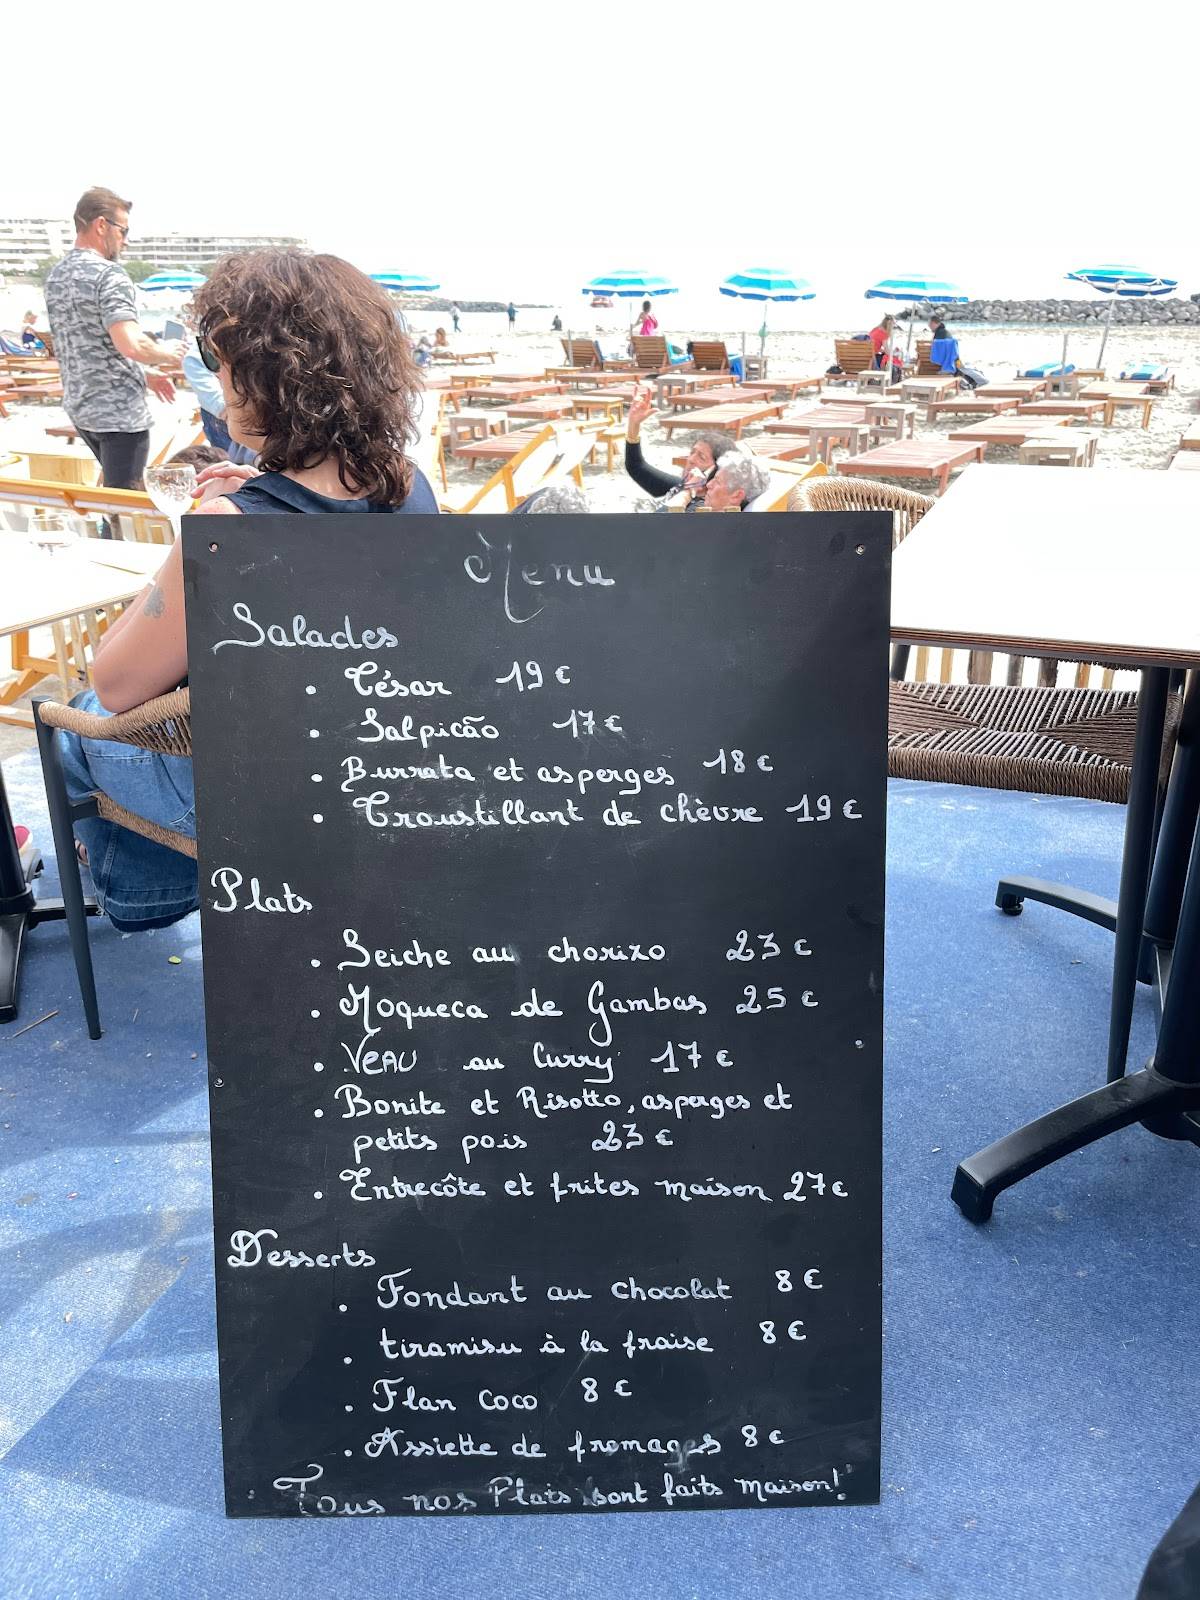 Menu
Salades
. César 19€
. Salpicão 17€
. Burrata et asperges 18€
. Croustillant de chèvre 19€
Plats
. Seiche au chorizo 23€
. Moqueca de Gambas 25€
. VEAU au Curry 17€
. Bonite et Risotto, asperges et
petits pois 23€
. Entrecôte et frites maison 27€
Desserts
. Fondant au chocolat 8€
. tiramisu à la fraise 8€
. Flan coco 8€
. Assiette de fromages 8€
" Tous nos Plats sont faits maison! "